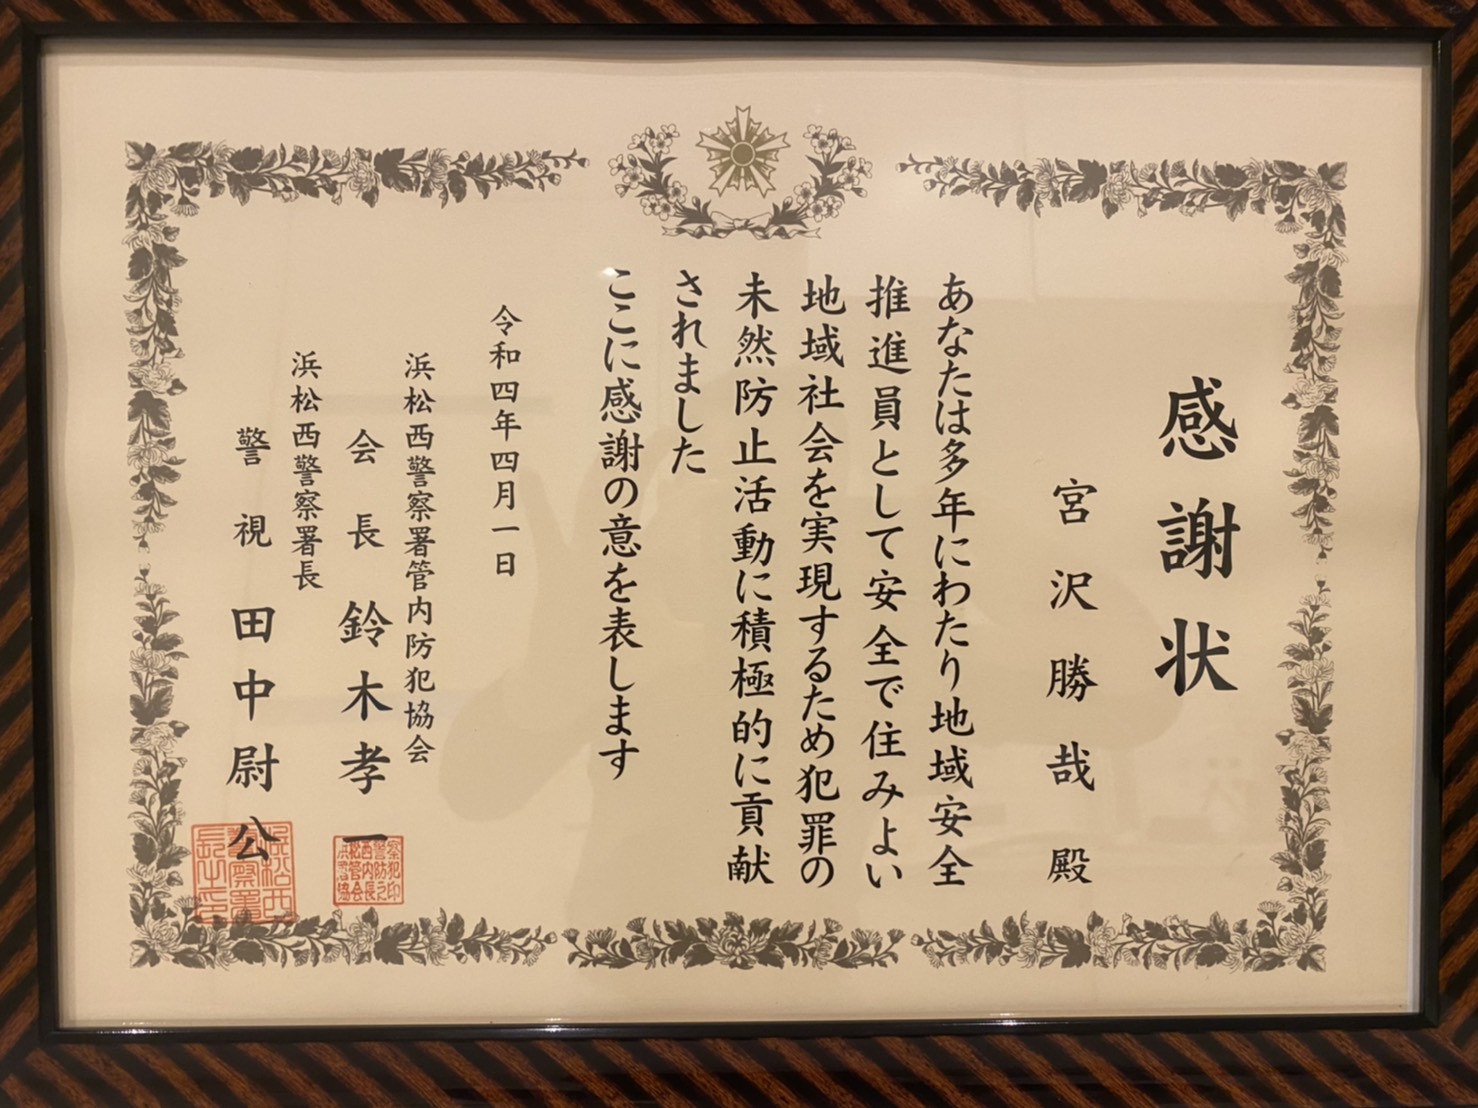 感謝状
宮沢勝哉殿
あなたは多年にわたり地域安全
推進員として安全で住みよい
地域社会を実現するため犯罪の
未然防止活動に積極的に貢献
されました
ここに感謝の意を表します
令和四年四月一日
浜松西警察署管内防犯協会
会長 鈴木孝一
浜松西警察署長
警視 田中尉公
浜松西警察署長之印